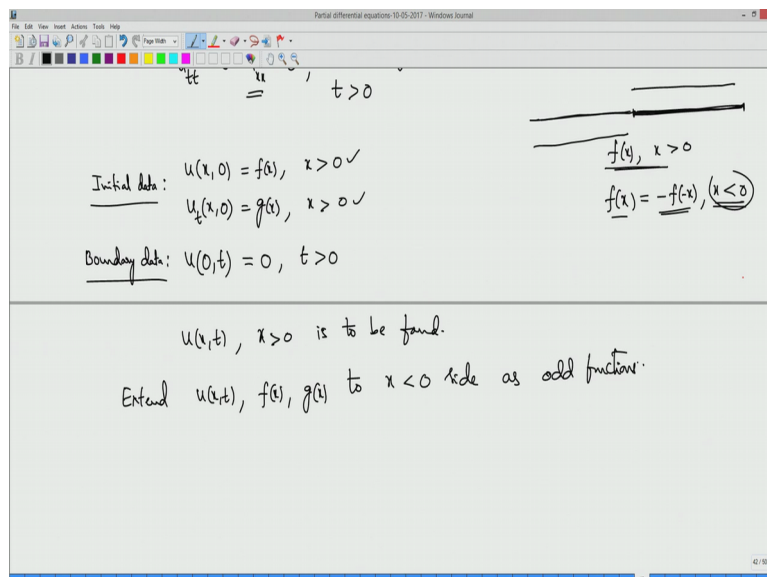 Partial differential equations-10-05-2017 - Windows Journal
File Edit View Insert Actions Tools Help
Page Width
B I
t > 0
f(x), x > 0
f(x) = -f(-x), x < 0
Initial data: u(x,0) = f(x), x > 0 ✓
u_t(x,0) = g(x), x > 0 ✓
Boundary data: u(0,t) = 0, t > 0
u(x,t), x > 0 is to be found.
Extend u(x,t), f(x), g(x) to x < 0 side as odd functions.
42 / 50